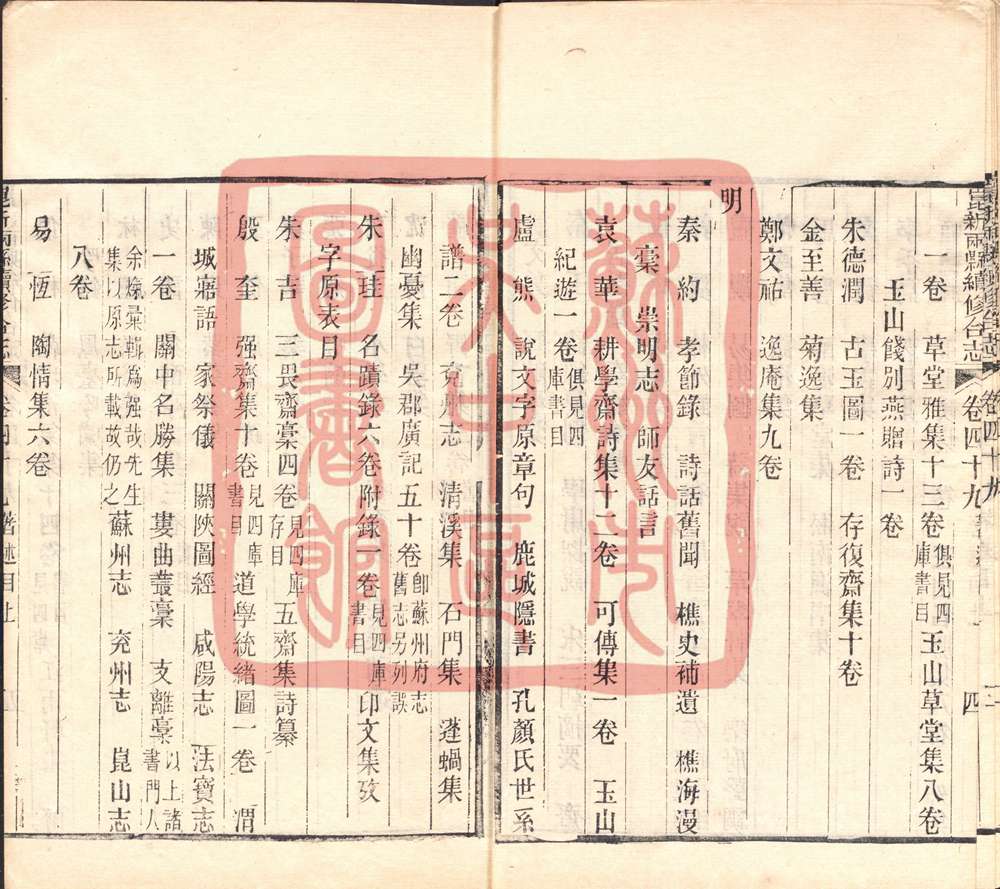 崑新兩縣續修合志 卷四十九 四
一卷 草堂雅集十三卷俱見四庫書目 玉山草堂集八卷
玉山餞別燕贈詩一卷
朱德潤 古玉圖一卷 存復齋集十卷
金至善 菊逸集
鄭文祐 逸庵集九卷
明
秦約 孝節錄 詩話舊聞 樵史補遺 樵海漫
稾 崇明志 師友話言
袁華 耕學齋詩集十二卷 可傳集一卷 玉山
紀遊一卷俱見四庫書目
盧熊 說文字原章句 鹿城隱書 孔顏氏世系
譜二卷 兗州志 清溪集 石門集 蓬蝸集
幽憂集 吳郡廣記五十卷卽蘇州府志舊志另列誤
朱珪 名蹟錄六卷附錄一卷見四庫書目 印文集攷
字原表目
朱吉 三畏齋稾四卷見四庫存目 五齋集詩纂
殷奎 强齋集十卷見四庫書目 道學統緒圖一卷 渭
城寤語 家祭儀 關陜圖經 咸陽志 法寶志
一卷 關中名勝集 婁曲叢稾 支離稾以上諸書門人
余熂彙輯爲强哉先生集以原志所載故仍之 蘇州志 兗州志 崑山志
八卷
易恆 陶情集六卷
蘇州市
吳中區
圖書館